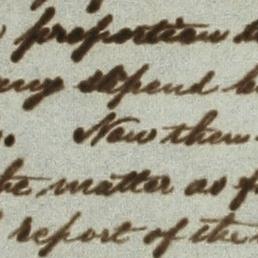 proportion
any stipend
Now then
the matter as
report of the